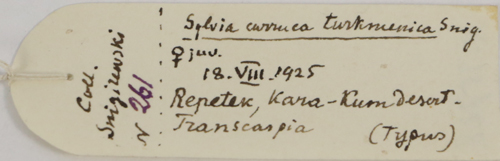 Coll.
Snigirewski
N 261
Sylvia curruca turkmenica Snig.
♀ juv.
18. VIII. 1925
Repetek, Kara-Kum desert.
Transcaspia (Typus)